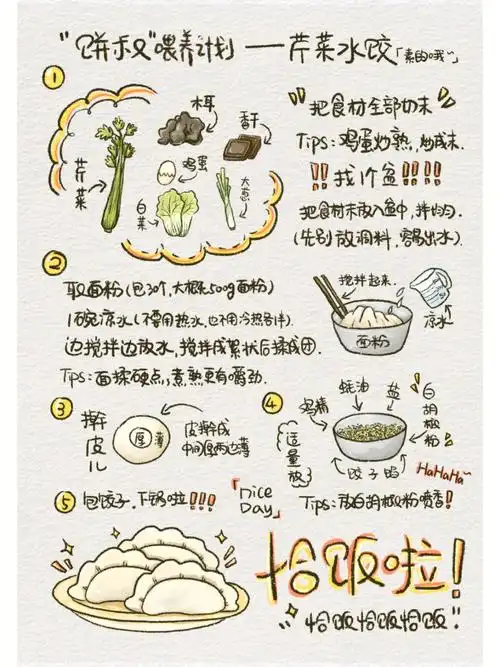 "饼叔"喂养计划——芹菜水饺「素的哦~」
①
木耳
香干
芹菜
鸡蛋
白菜
大葱
"把食材全部切末"
Tips:鸡蛋炒熟,炒成末.
!!找个盆!!!!
把食材末放入盆中,拌均匀.
(先别放调料,容易出水)
②
取面粉(包30个,大概500g面粉)
1碗凉水(不要用热水,也不用冷热各半).
边搅拌边放水,搅拌成絮状后揉成团.
Tips:面揉硬点,煮熟更有嚼劲.
搅拌起来.
凉水
面粉
③
擀皮儿
厚
薄
皮擀成
中间厚两边薄
④
蚝油
盐
鸡精
白胡椒粉
(适量放)
饺子馅
HaHaHa~
Tips:放白胡椒粉喷香!
⑤包饺子,下锅啦!!!
「nice Day」
恰饭啦!
"恰饭恰饭恰饭"